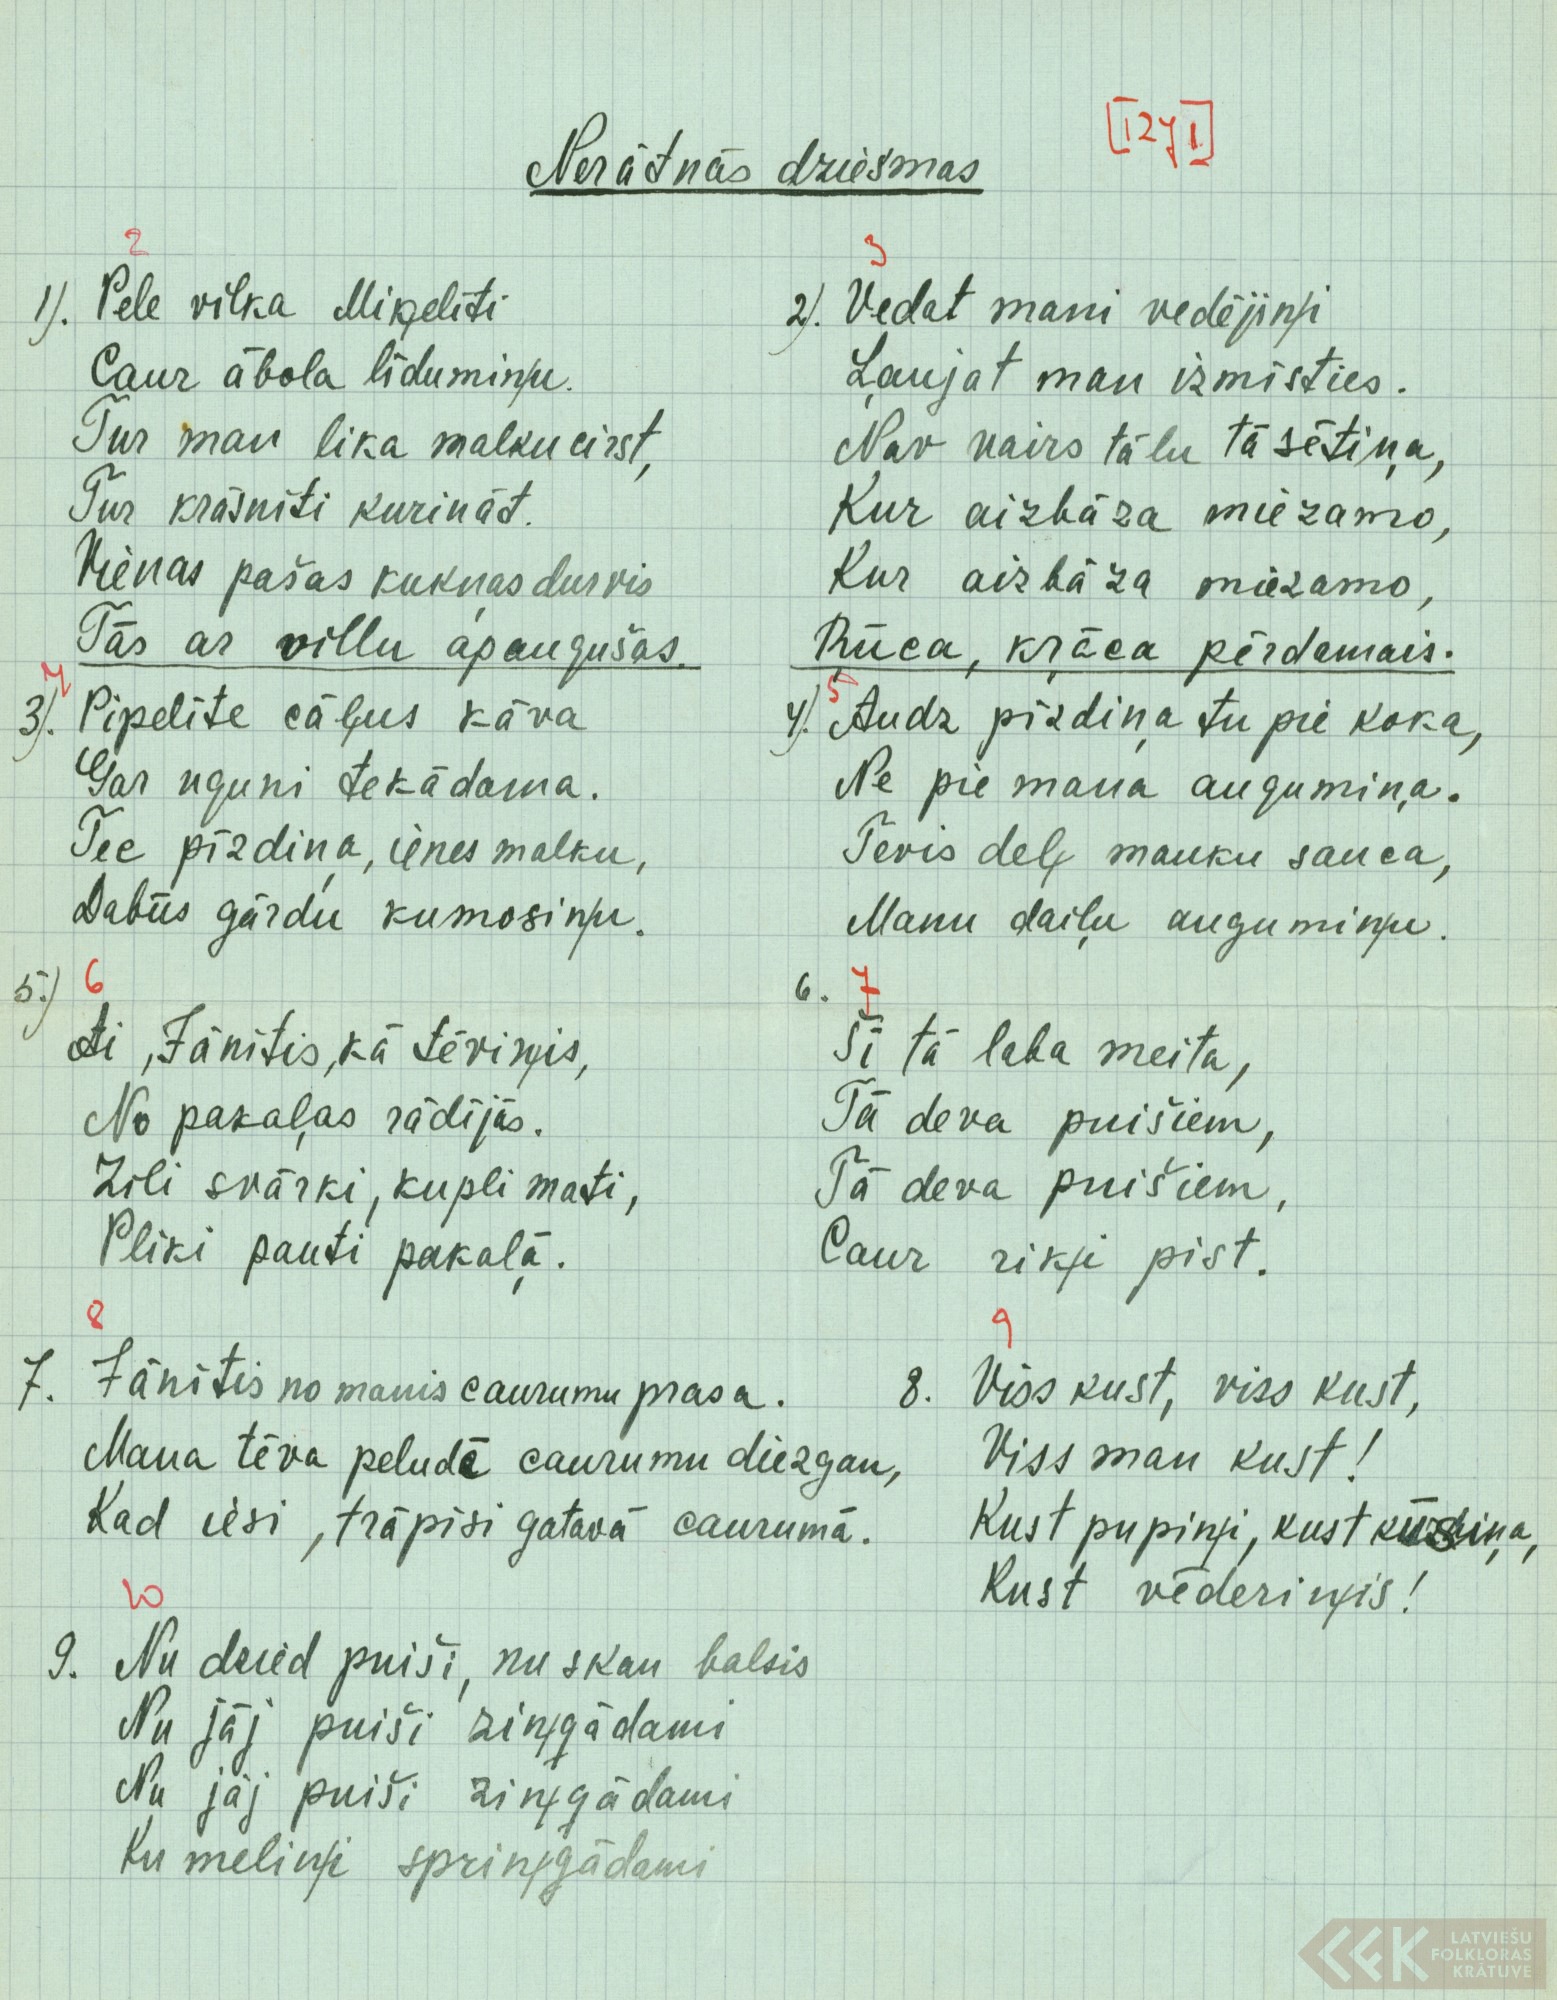 [1271]
Nerātnās dziesmas
2
1). Pele vilka Miķelīti
Caur ābola līdumiņu.
Tur man lika malku cirst,
Tur krāsnīti kurināt.
Vienas pašas kukņas durvis
Tās ar villu apaugušas.
3
2). Vedat mani vedējiņi
Ļaujat man izmīsties.
Nav vairs tālu tā sētiņa,
Kur aizbāza miezamo,
Kur aizbāza miezamo,
Rūca, krāca pērdamais.
4
3). Pipelīte cāļus kāva
Gar uguni tekādama.
Tec pīzdiņa, ienes malku,
Dabūs gārdu kumosiņu.
5
4). Audz pīzdiņa tu pie koka,
Ne pie mana augumiņa.
Tevis deļ mauku sauca,
Manu daiļu augumiņu.
6
5.) Ai, Jānītis, kā tēviņis,
No pakaļas rādījās.
Zili svārki, kupli mati,
Pliki pauti pakaļā.
7
6. Šī tā laba meita,
Tā deva puišiem,
Tā deva puišiem,
Caur riķi pist.
8
7. Jānītis no manis caurumu prasa.
Mana tēva peludē caurumu diezgan,
Kad iesi, trāpīsi gatavā caurumā.
9
8. Viss kust, viss kust,
Viss man kust!
Kust pupiņi, kust kūsiņa,
Kust vēderiņis!
10
9. Nu dzied puiši, nu skan balsis
Nu jāj puiši ziņģādami
Nu jāj puiši ziņģādami
Kumeliņi spriņģādami
LATVIEŠU
FOLKLORAS
KRĀTUVE